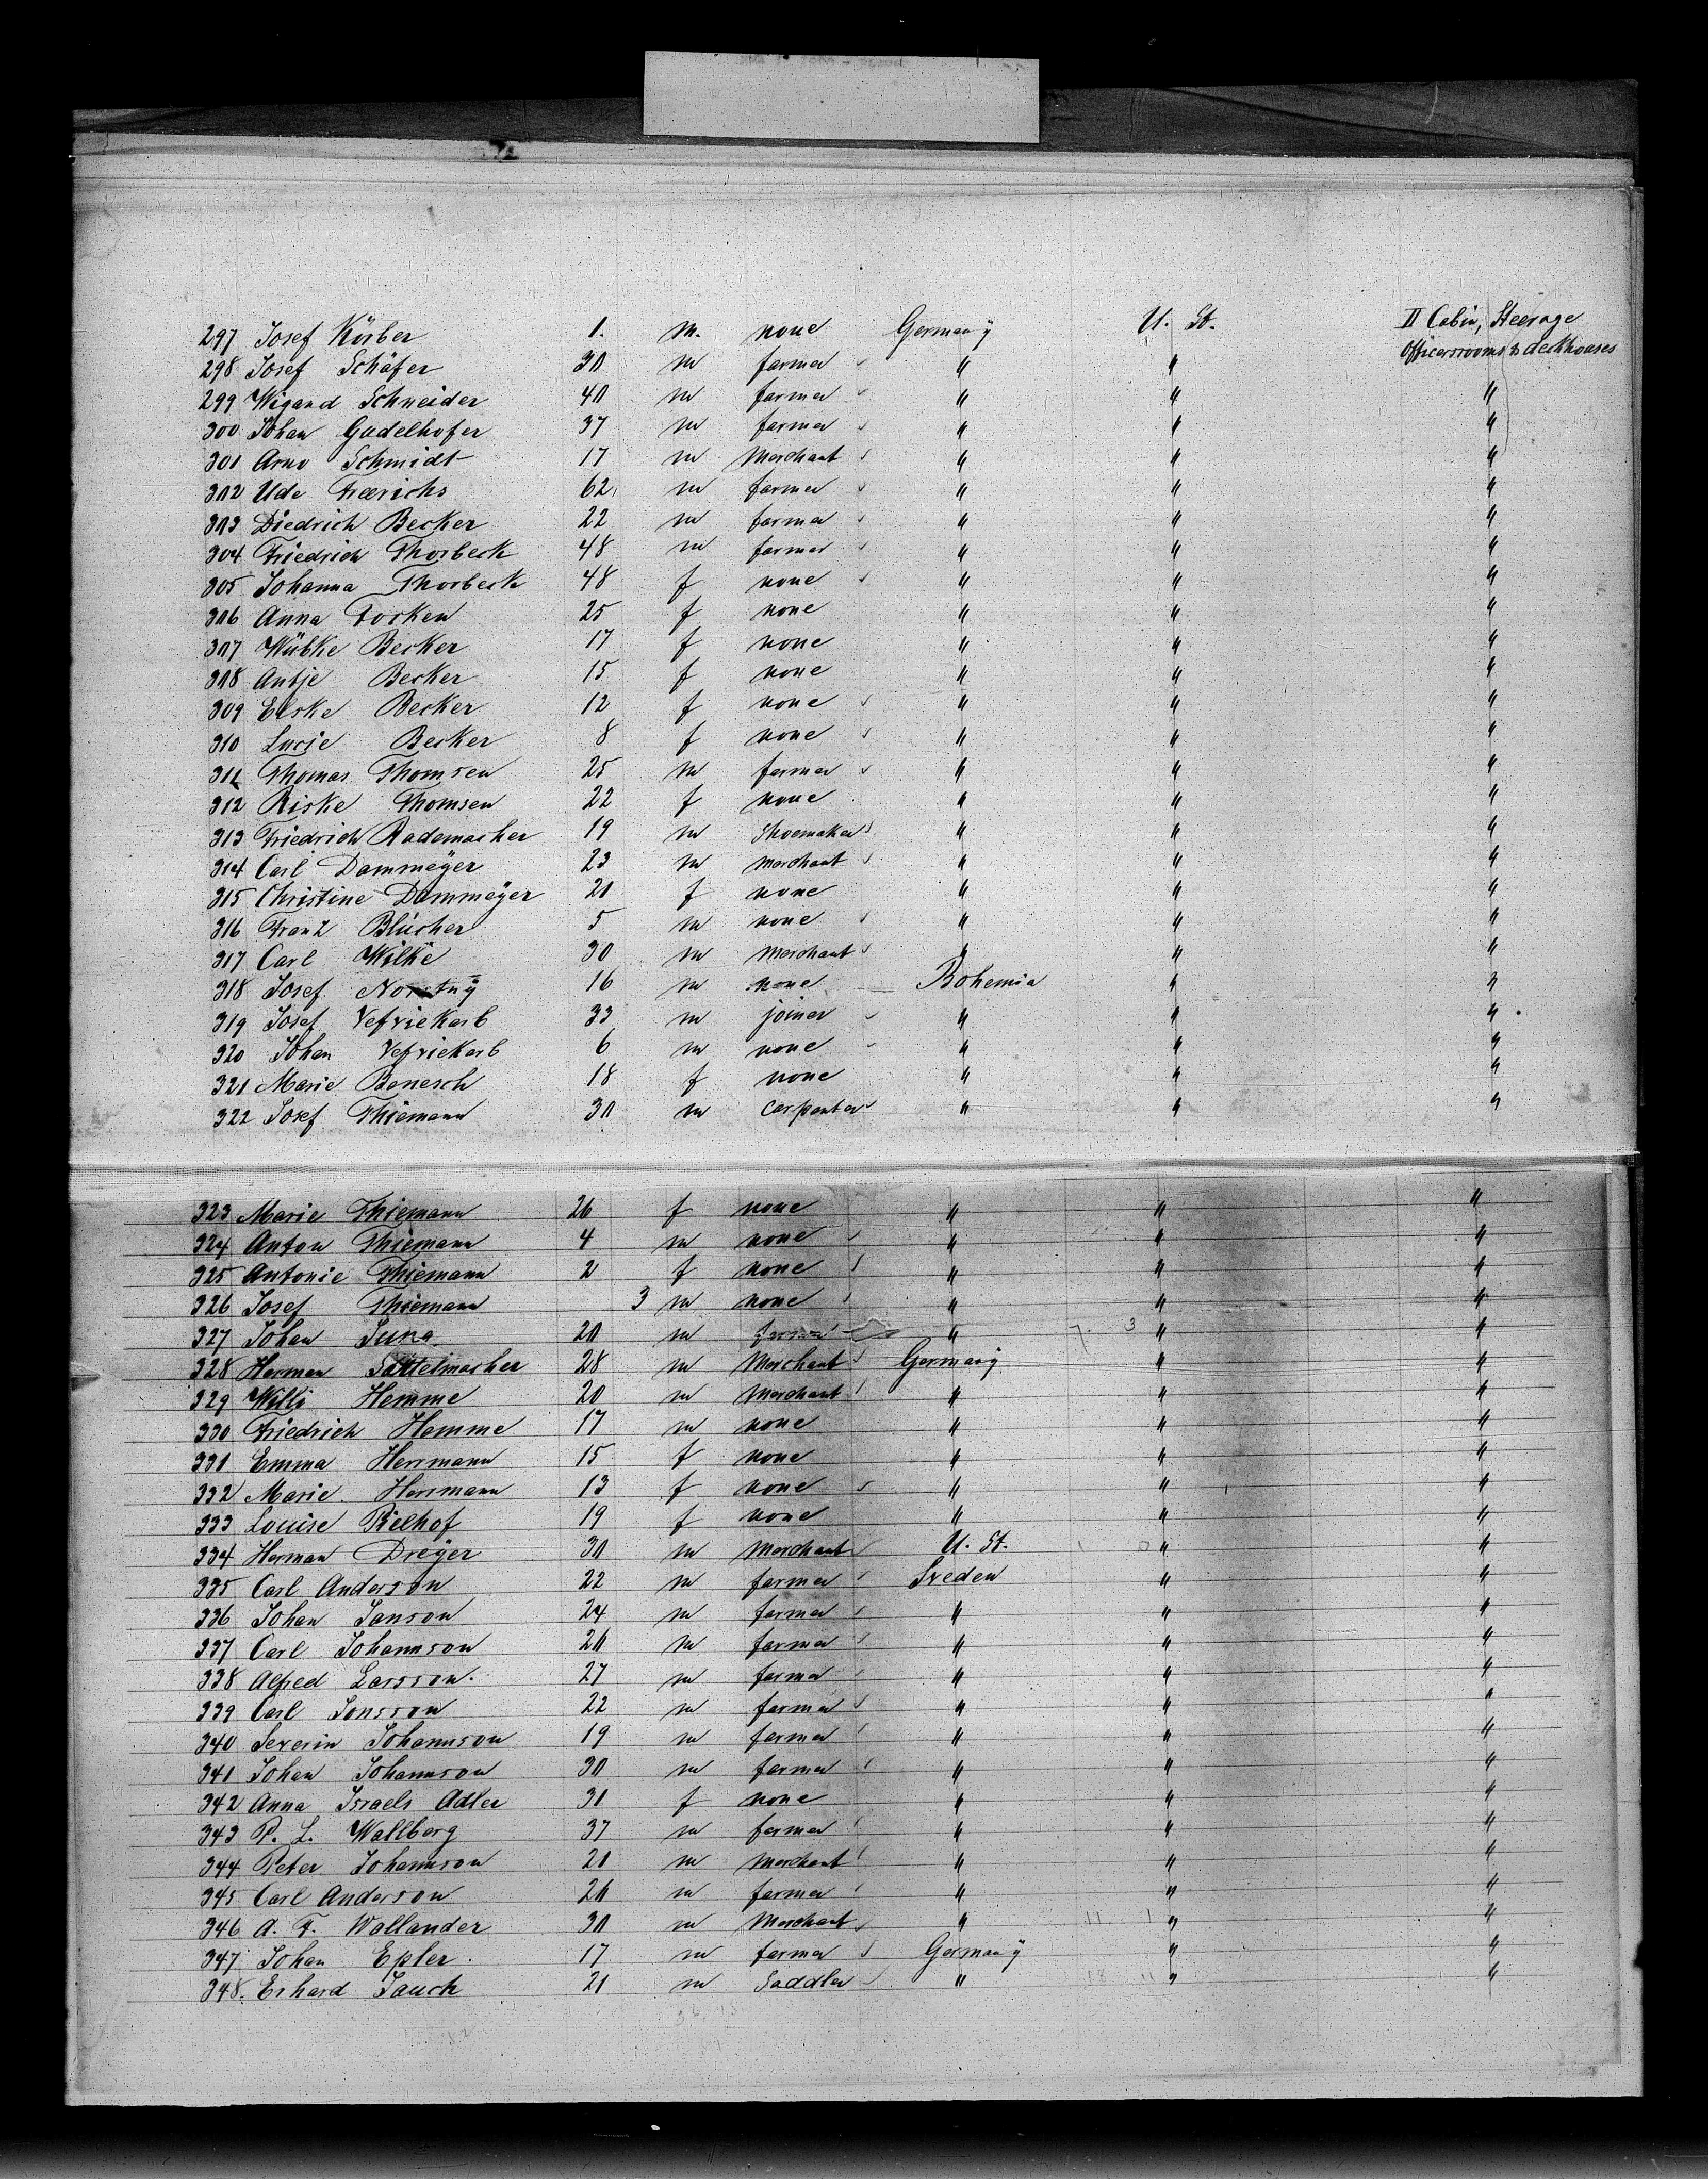 297 Josef Körber 1. m. none Germanÿ U. St. II Cabin, Steerage
Officersrooms & deckhouses
298 Josef Schäfer 30 m farmer " "
299 Wigand Schneider 40 m farmer " " "
300 Johan Gudelhofer 37 m farmer " " "
301 Arno Schmidt 17 m Merchant " " "
302 Ude Freerichs 62 m farmer " " "
303 Diedrich Becker 22 m farmer " " "
304 Friedrich Thorbeck 48 m farmer " " "
305 Johanna Thorbeck 48 f none " " "
306 Anna Focken 25 f none " " "
307 Wübke Becker 17 f none " " "
308 Antje Becker 15 f none " " "
309 Elske Becker 12 f none " " "
310 Lucje Becker 8 f none " " "
311 Thomas Thomsen 25 m farmer " " "
312 Riske Thomsen 22 f none " " "
313 Friedrich Rademacher 19 m Shoemaker " " "
314 Carl Dammeÿer 23 m Merchant " " "
315 Christine Dammeÿer 20 f none " " "
316 Franz Blücher 5 m none " " "
317 Carl Wilke 30 m Merchant " " "
318 Josef 16 m none Bohemia " "
319 Josef Vefriekarb 33 m joiner " " "
320 Johan Vefriekarb 6 m none " " "
321 Marie Benesch 18 f none " " "
322 Josef Thiemann 30 m Carpenter " " "
323 Marie Thiemann 26 f none " " "
324 Anton Thiemann 4 m none " " "
325 Antonie Thiemann 2 f none " " "
326 Josef Thiemann 3 m none " " "
327 Johan 20 m " 7. 3 " "
328 Herman Sattelmacher 28 m Merchant Germanÿ " "
329 Willi Hemme 20 m Merchant " " "
330 Friedrich Hemme 17 m none " " "
331 Emma Herrmann 15 f none " " "
332 Marie. Herrmann 13 f none " " "
333 Louise Pielhof 19 f none " " "
334 Herman Dreÿer 30 m Merchant U. St. " "
335 Carl Anderson 22 m farmer Sveden " "
336 Johan Janson 24 m farmer " " "
337 Carl Johannson 20 m farmer " " "
338 Alfred Larsson. 27 m farmer " " "
339 Carl Jonsson 22 m farmer " " "
340 Severin Johannson 19 m farmer " " "
341 Johan Johannson 30 m farmer " " "
342 Anna Israels Adler 31 f none " " "
343 P. L. Wallberg 37 m farmer " " "
344 Peter Johannson 20 m Merchant " " "
345 Carl Anderson 20 m farmer " " "
346 A. F. Wallander 30 m Merchant " 11 1 " "
347 Johan Epler 17 m farmer Germanÿ " "
348. Erhard Jauch 21 m Saddler " 18 11 " "